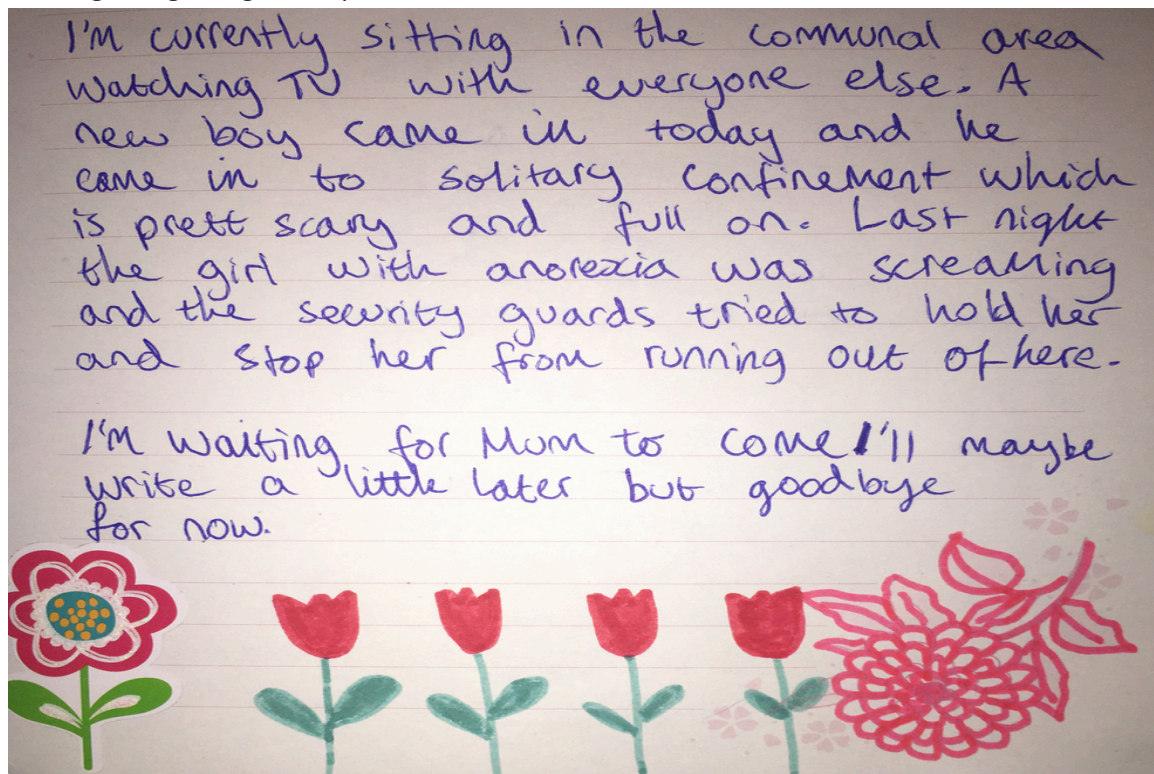 I'm currently sitting in the communal area
watching TV with everyone else. A
new boy came in today and he
came in to solitary confinement which
is prett scary and full on. Last night
the girl with anorexia was screaming
and the security guards tried to hold her
and stop her from running out of here.
I'm waiting for Mum to come I'll maybe
write a little later but goodbye
for now.